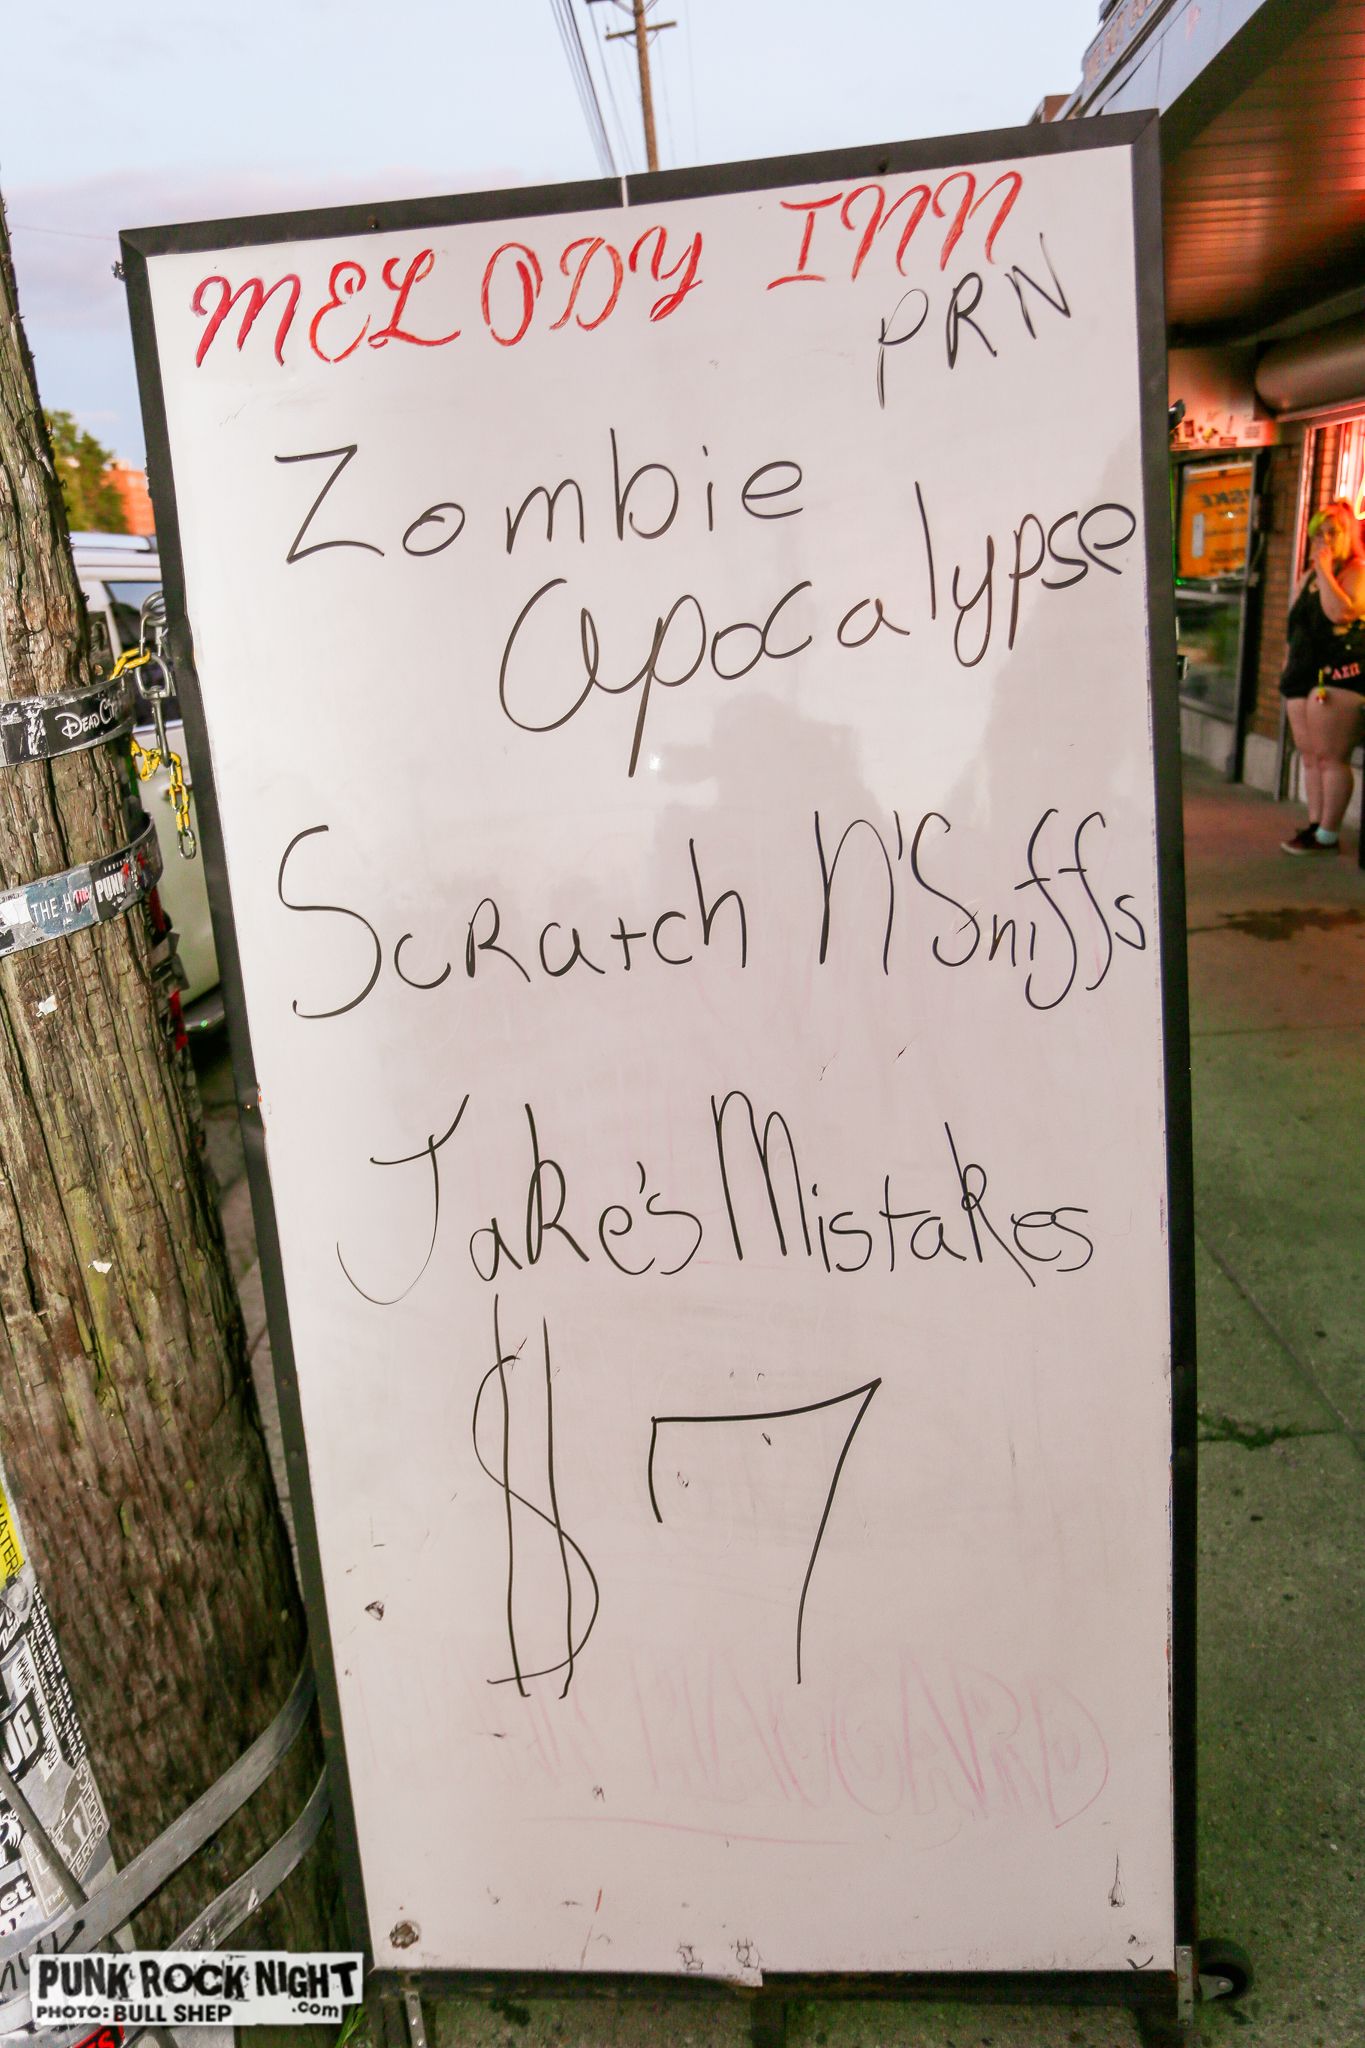 MELODY INN
PRN
Zombie
apocalypse
Scratch N'Sniffs
Jake's Mistakes
$7
DEAD
THE
PUNK
PUNK ROCK NIGHT
.com
PHOTO: BULL SHEP